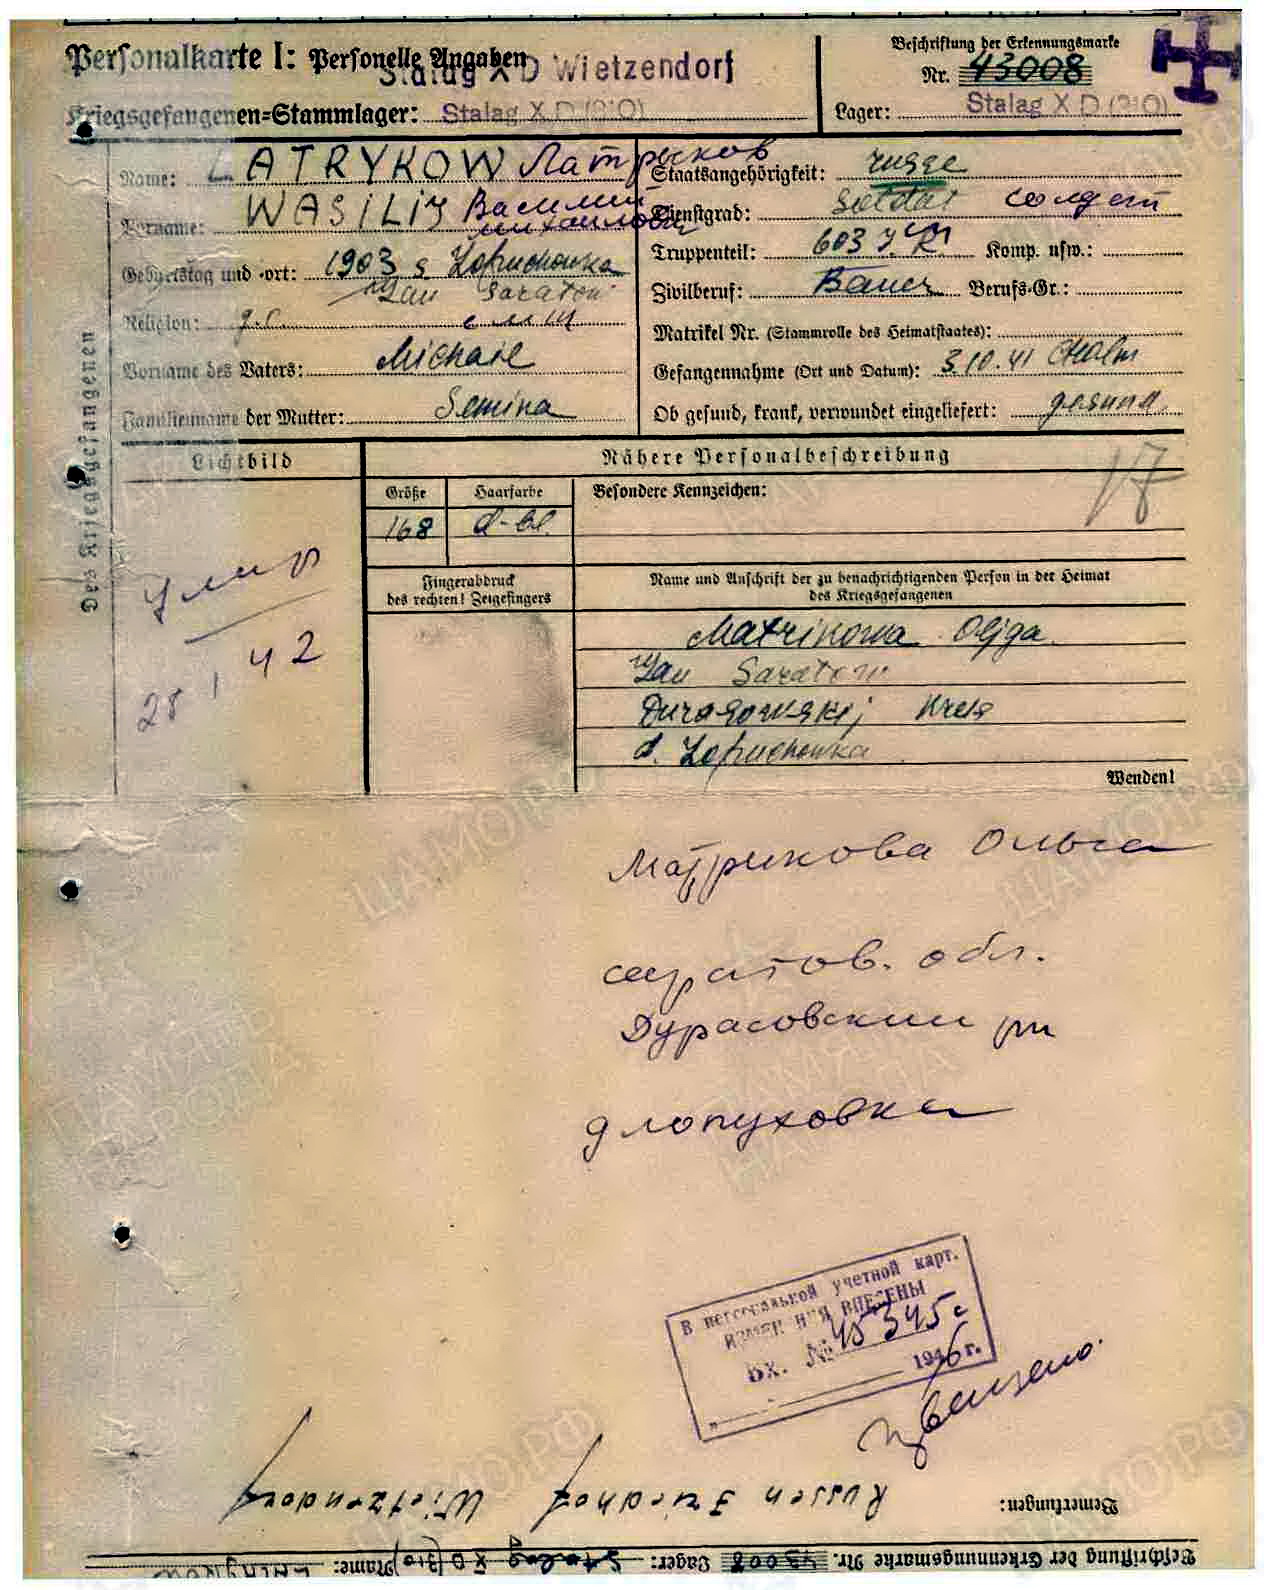 Personalkarte I: Personelle Angaben
Stalag X D Wietzendorf
Kriegsgefangenen=Stammlager: Stalag X D (310)
Beschriftung der Erkennungsmarke
Nr. 43008
Lager: Stalag X D (310)
Des Kriegsgefangenen
Name: LATRYKOW Латрыков
Vorname: WASILIJ Василий
Михайлович
Geburtstag und =ort: 1903 s Lopuchowka
Saratow
Religion: g.r.
Vorname des Vaters: Michail
Familienname der Mutter: Semina
Staatsangehörigkeit: russe
Dienstgrad: Soldat солдат
Truppenteil: 603 Komp. usw.:
Zivilberuf: Bauer Berufs=Gr.:
Matrikel Nr. (Stammrolle des Heimatstaates):
Gefangennahme (Ort und Datum): 3.10.41 Cholm
Ob gesund, krank, verwundet eingeliefert: gesund
Lichtbild
Nähere Personalbeschreibung
Größe Haarfarbe Besondere Kennzeichen:
168 d-bl.
17
умер
28 1 42
Fingerabdruck
des rechten! Zeigefingers
Name und Anschrift der zu benachrichtigenden Person in der Heimat
des Kriegsgefangenen
Matrikowa Oljga
Saratow
Durasowskij Kreis
d. Lopuchowka
Wenden!
Матрикова Ольга
саратов. обл.
Дурасовский рн
д лопуховка
В персональной учетной карт.
ИЗМЕНЕНИЯ ВНЕСЕНЫ
Вх. № 45345с
1946 г.
Bemerkungen: Russen Friedhof Wietzendorf
Beschriftung der Erkennungsmarke Nr. 43008 Lager: Stalag X D (310) Name: LATRYKOW
ЦАМО.РФ
ПАМЯТЬ
НАРОДА